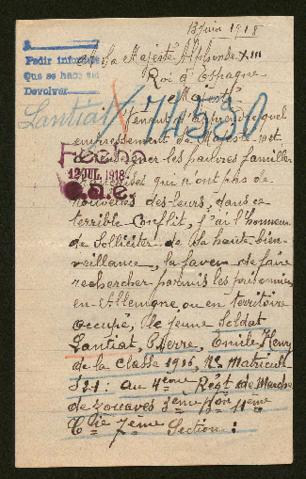 13 Juin 1918
Pedir informe
Que se hace
Devolver
à Sa Majesté Alphonse XIII
Roi d'Espagne
Majesté
Lantiat
74530
Venant d'apprendre quel
empressement sa Majesté met
les pauvres familles
qui n'ont pas de
Fecha
12 JUL. 1918
nouvelles des leurs, dans ce
terrible Conflit, j'ai l'honneur
de Solliciter de Sa haute bien-
veillance, la faveur de faire
rechercher parmis les prisonniers
en Allemagne ou en territoire
Occupé, le jeune Soldat
Lantiat, Pierre, Emile, Henry
de la classe 1916, No Matricule
au 4ème Régt de Marche
de Zouaves 3ème Bon 11ème
Cie 7ème Section: